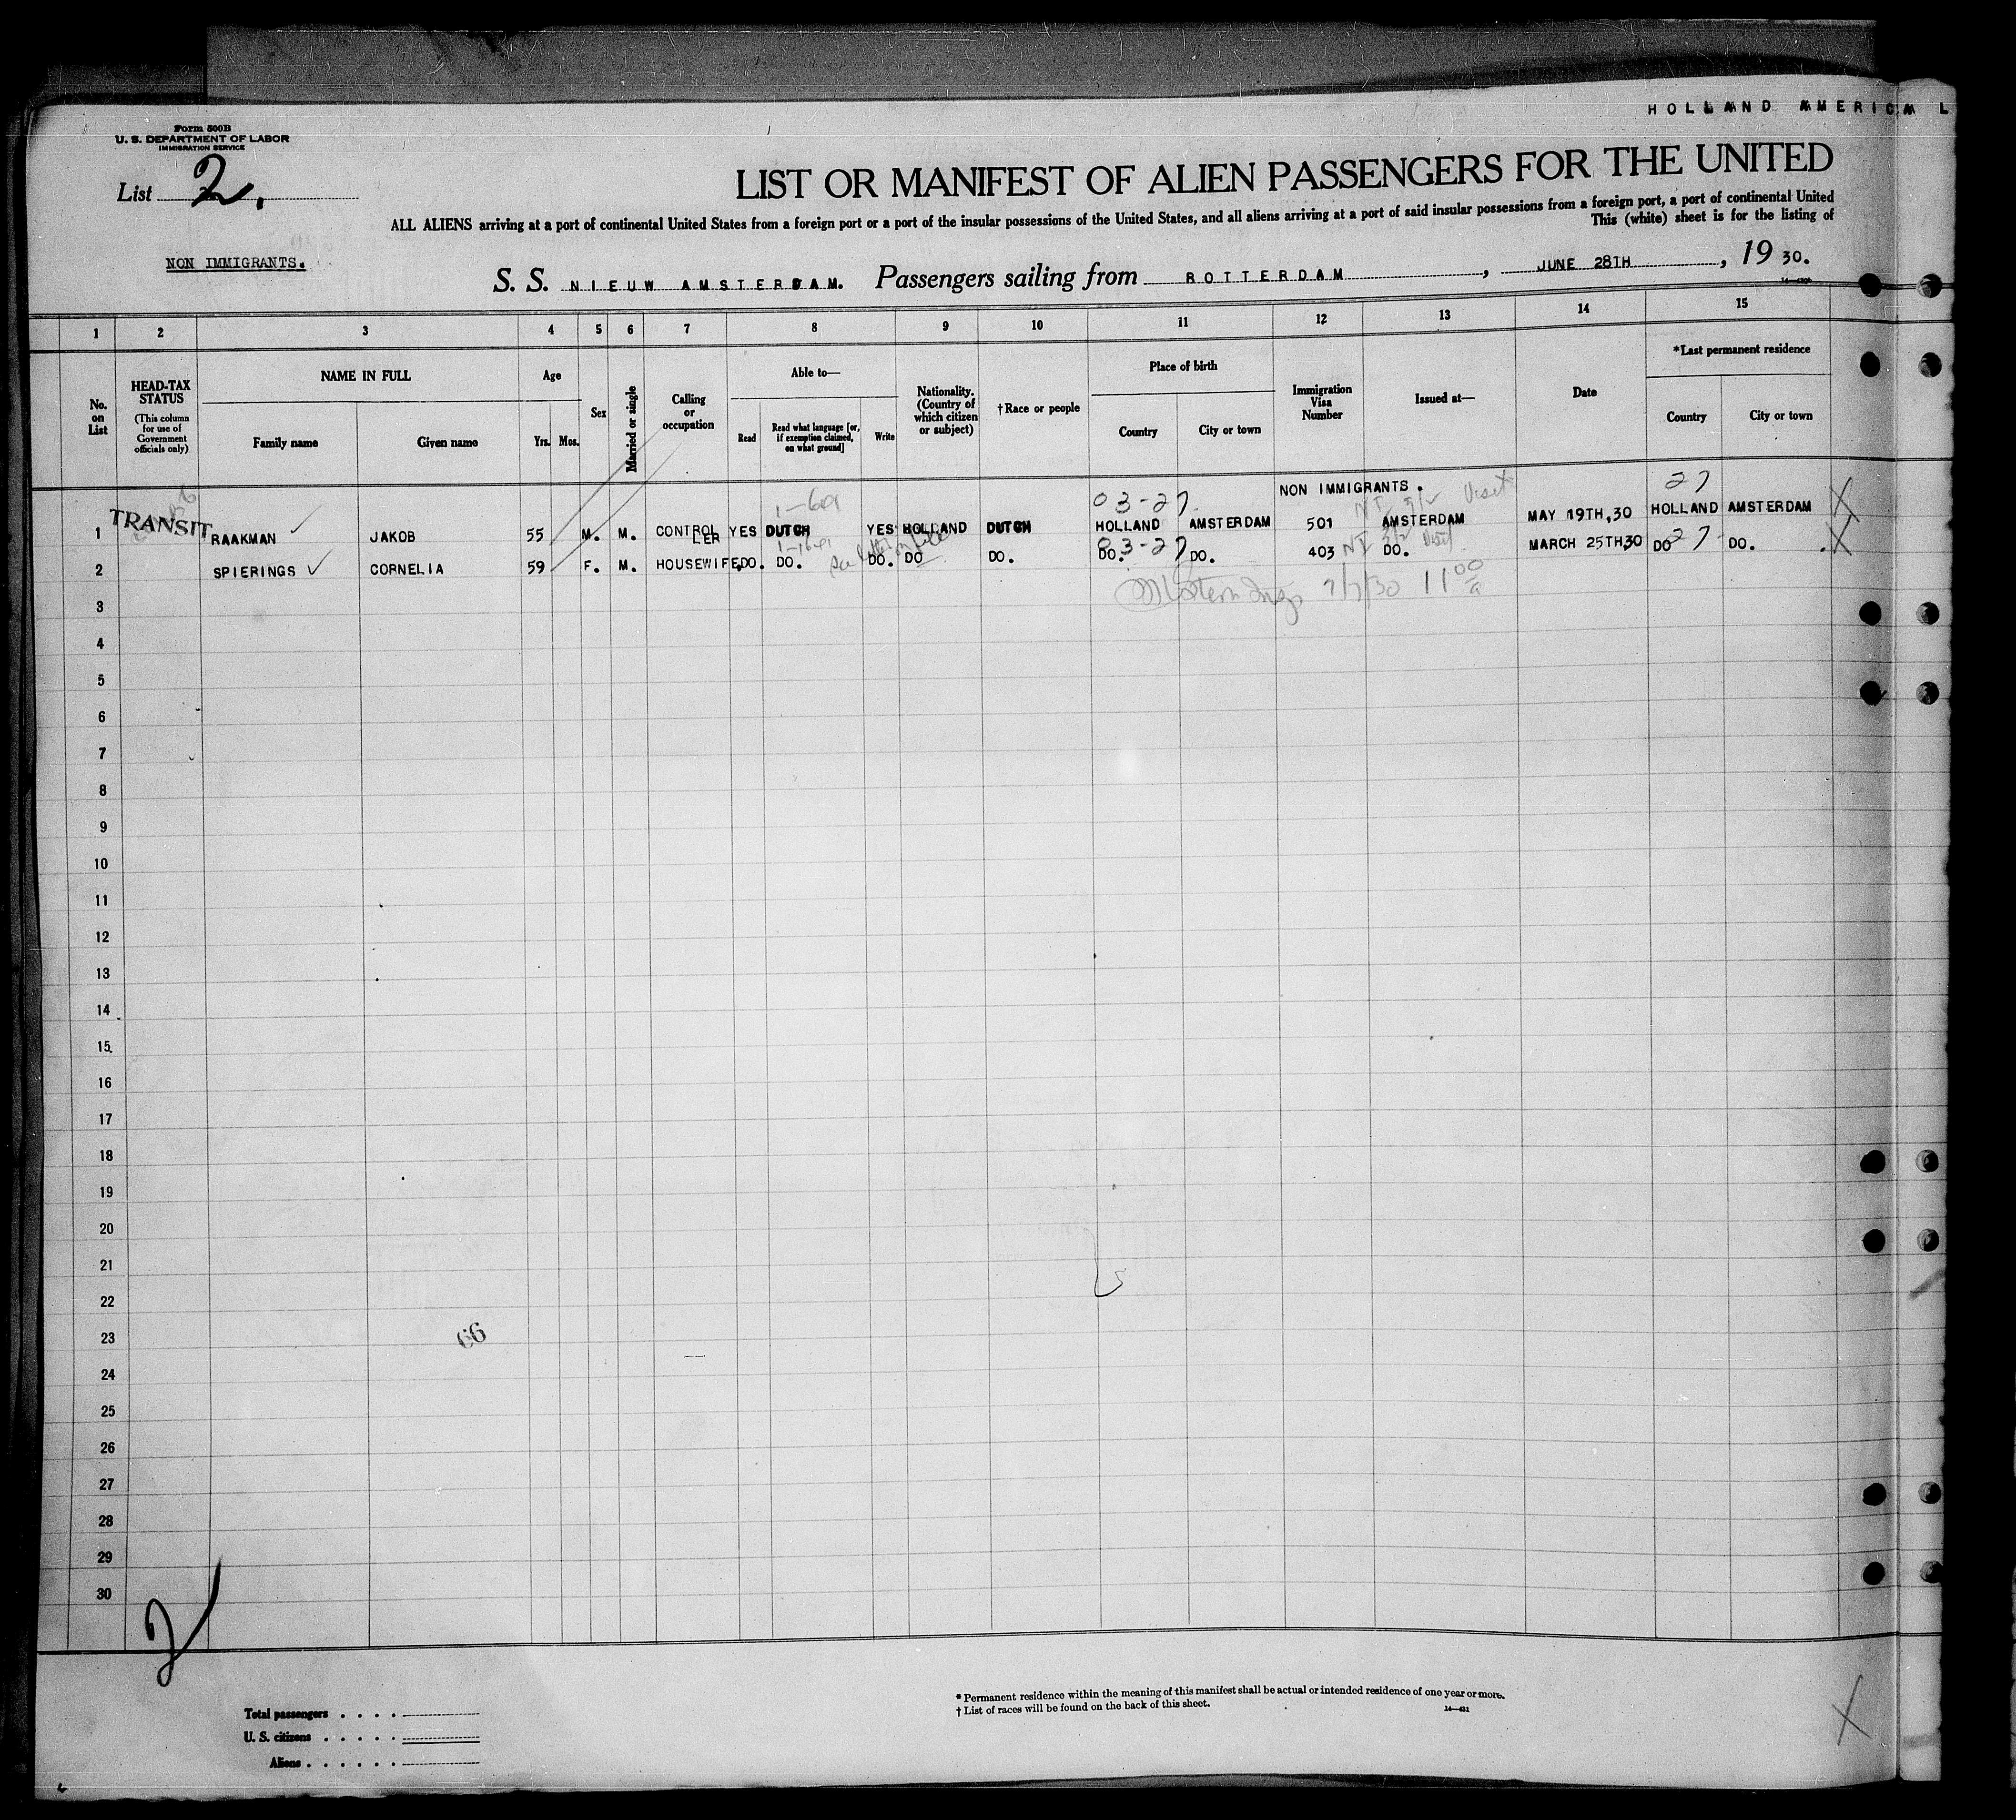 HOLLAND AMERICA L
Form 500B
U. S. DEPARTMENT OF LABOR
IMMIGRATION SERVICE
List 2.
LIST OR MANIFEST OF ALIEN PASSENGERS FOR THE UNITED
ALL ALIENS arriving at a port of continental United States from a foreign port or a port of the insular possessions of the United States, and all aliens arriving at a port of said insular possessions from a foreign port, a port of continental United
This (white) sheet is for the listing of
NON IMMIGRANTS.
S. S. NIEUW AMSTERDAM. Passengers sailing from ROTTERDAM, JUNE 28TH, 19 30.
1 2 3 4 5 6 7 8 9 10 11 12 13 14 15
No. on List
HEAD-TAX STATUS (This column for use of Government officials only)
NAME IN FULL
Family name
Given name
Age
Yrs. Mos.
Sex
Married or single
Calling or occupation
Able to—
Read
Read what language [or, if exemption claimed, on what ground]
Write
Nationality. (Country of which citizen or subject)
†Race or people
Place of birth
Country
City or town
Immigration Visa Number
Issued at—
Date
*Last permanent residence
Country
City or town
NON IMMIGRANTS.
03-27
27
1 TRANSIT RAAKMAN JAKOB 55 M. M. CONTROLLER YES DUTCH YES HOLLAND DUTCH HOLLAND AMSTERDAM 501 AMSTERDAM MAY 19TH,30 HOLLAND AMSTERDAM
NI Visit
03-27
27
2 SPIERINGS CORNELIA 59 F. M. HOUSEWIFE DO. DO. DO. DO DO. DO. DO. 403 DO. MARCH 25TH,30 DO DO.
NI Visit
7/7/30 11 00 a
3
4
5
6
7
8
9
10
11
12
13
14
15
16
17
18
19
20
21
22
23
66
24
25
26
27
28
29
30
2
* Permanent residence within the meaning of this manifest shall be actual or intended residence of one year or more.
† List of races will be found on the back of this sheet.
14—431
Total passengers
U. S. citizens
Aliens